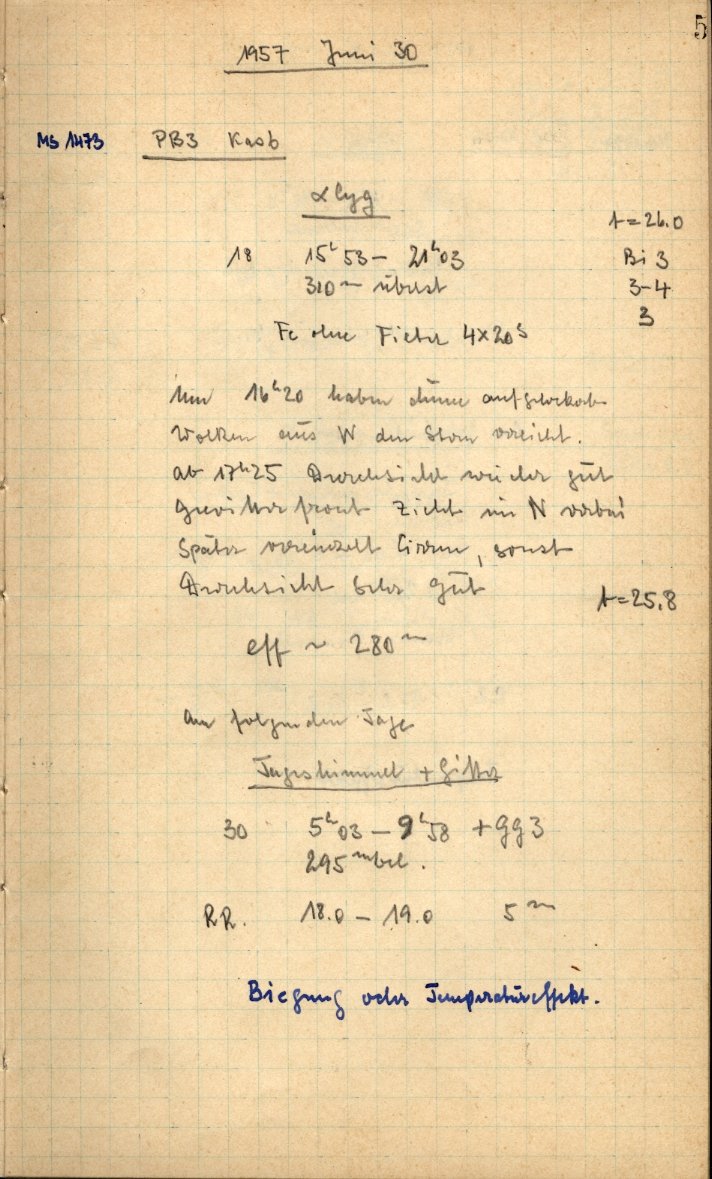 5
1957 Juni 30
MS 1473 PB3 Kasb
α Cyg
t=26.0
18 15h 53 – 21h 03 Bi 3
310m 3-4
3
Fe ohne Filter 4×20s
Um 16h20 haben dünne aufgelockerte
Wolken aus W den Stern erreicht.
ab 17h25 Durchsicht wieder gut
Gewitterfront zieht im N vorbei
Später vereinzelt Cirren, sonst
Durchsicht sehr gut
t=25.8
eff ~ 280m
Am folgenden Tage
Tageshimmel + Gitter
30 5h03 – 9h58 + GG3
295m bel.
RR. 18.0 – 19.0 5m
Biegung oder Temperatureffekt.